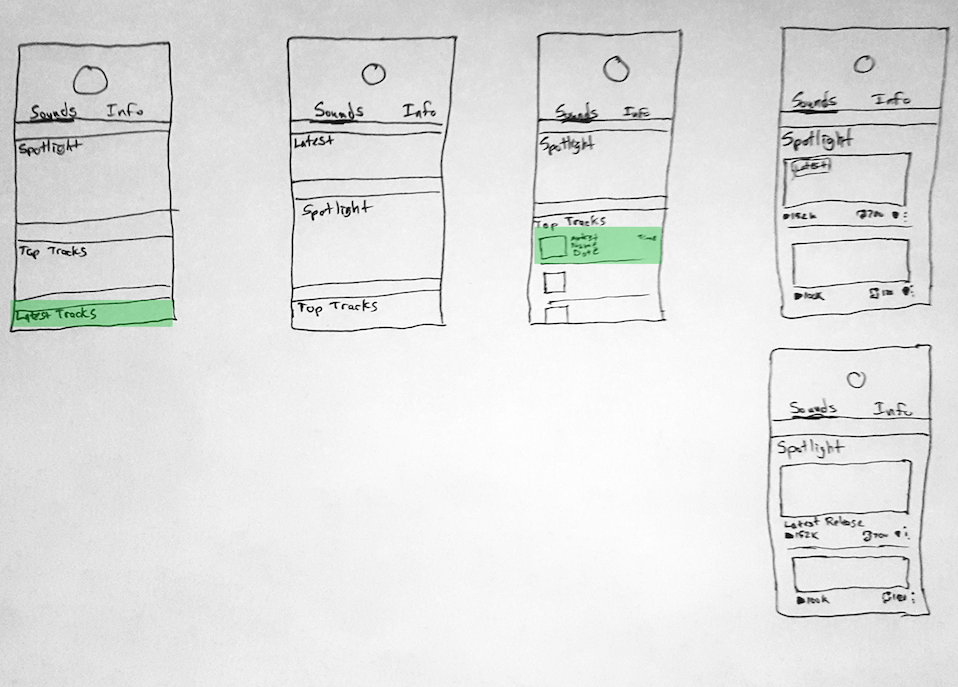 Sounds Info
Spotlight
Top Tracks
Latest Tracks
Sounds Info
Latest
Spotlight
Top Tracks
Sounds Info
Spotlight
Top Tracks
Artist Time
Name
Date
Sounds Info
Spotlight
Latest
152K 700
100K 100
Sounds Info
Spotlight
Latest Release
152K 700
100K